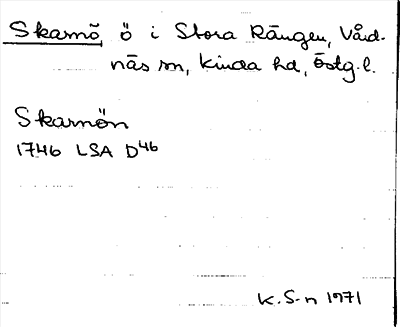 Skarnö ö i Stora Rängen, Vård-
näs sn, Kinda hd, Östg.l.
Skarnön
1746 LSA D46
K.S-n 1971